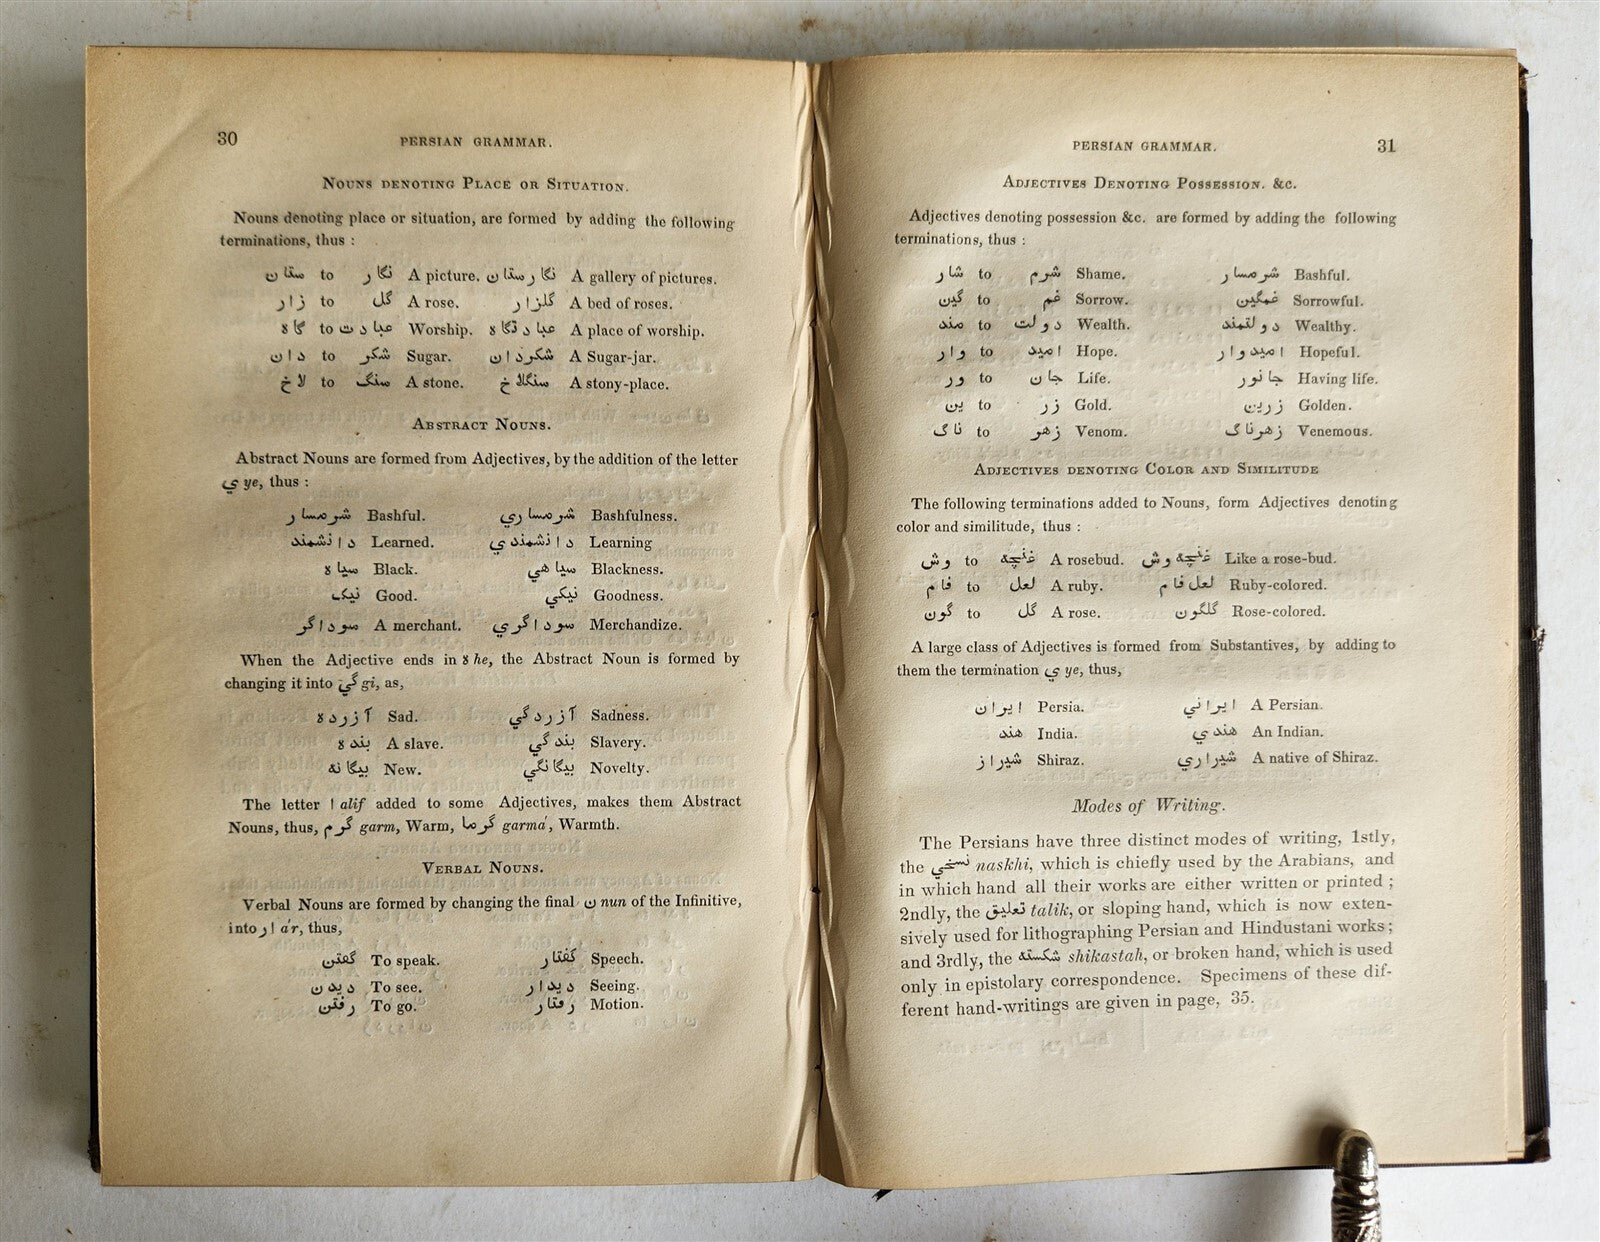 30
PERSIAN GRAMMAR.
NOUNS DENOTING PLACE OR SITUATION.
Nouns denoting place or situation, are formed by adding the following
terminations, thus :
ستان to نگار A picture. نگارستان A gallery of pictures.
زار to گل A rose. گلزار A bed of roses.
گاه to عبادت Worship. عبادتگاه A place of worship.
دان to شکر Sugar. شکردان A Sugar-jar.
لاخ to سنگ A stone. سنگلاخ A stony-place.
ABSTRACT NOUNS.
Abstract Nouns are formed from Adjectives, by the addition of the letter
ي ye, thus :
شرمسار Bashful. شرمساري Bashfulness.
دانشمند Learned. دانشمندي Learning
سياه Black. سياهي Blackness.
نيک Good. نيکي Goodness.
سوداگر A merchant. سوداگري Merchandize.
When the Adjective ends in ه he, the Abstract Noun is formed by
changing it into گي gi, as,
آزرده Sad. آزردگي Sadness.
بنده A slave. بندگي Slavery.
بيگانه New. بيگانگي Novelty.
The letter ا alif added to some Adjectives, makes them Abstract
Nouns, thus, گرم garm, Warm, گرما garmá, Warmth.
VERBAL NOUNS.
Verbal Nouns are formed by changing the final ن nun of the Infinitive,
into ار ár, thus,
گفتن To speak. گفتار Speech.
ديدن To see. ديدار Seeing.
رفتن To go. رفتار Motion.
PERSIAN GRAMMAR.
31
ADJECTIVES DENOTING POSSESSION. &c.
Adjectives denoting possession &c. are formed by adding the following
terminations, thus :
شار to شرم Shame. شرمسار Bashful.
گين to غم Sorrow. غمگين Sorrowful.
مند to دولت Wealth. دولتمند Wealthy.
وار to اميد Hope. اميدوار Hopeful.
ور to جان Life. جانور Having life.
ين to زر Gold. زرين Golden.
ناگ to زهر Venom. زهرناگ Venemous.
ADJECTIVES DENOTING COLOR AND SIMILITUDE
The following terminations added to Nouns, form Adjectives denoting
color and similitude, thus :
وش to غنچه A rosebud. غنچه وش Like a rose-bud.
فام to لعل A ruby. لعل فام Ruby-colored.
گون to گل A rose. گلگون Rose-colored.
A large class of Adjectives is formed from Substantives, by adding to
them the termination ي ye, thus,
ايران Persia. ايراني A Persian.
هند India. هندي An Indian.
شيراز Shiraz. شيراري A native of Shiraz.
Modes of Writing.
The Persians have three distinct modes of writing, 1stly,
the نسخي naskhi, which is chiefly used by the Arabians, and
in which hand all their works are either written or printed ;
2ndly, the تعليق talik, or sloping hand, which is now exten-
sively used for lithographing Persian and Hindustani works ;
and 3rdly, the شکسته shikastah, or broken hand, which is used
only in epistolary correspondence. Specimens of these dif-
ferent hand-writings are given in page, 35.